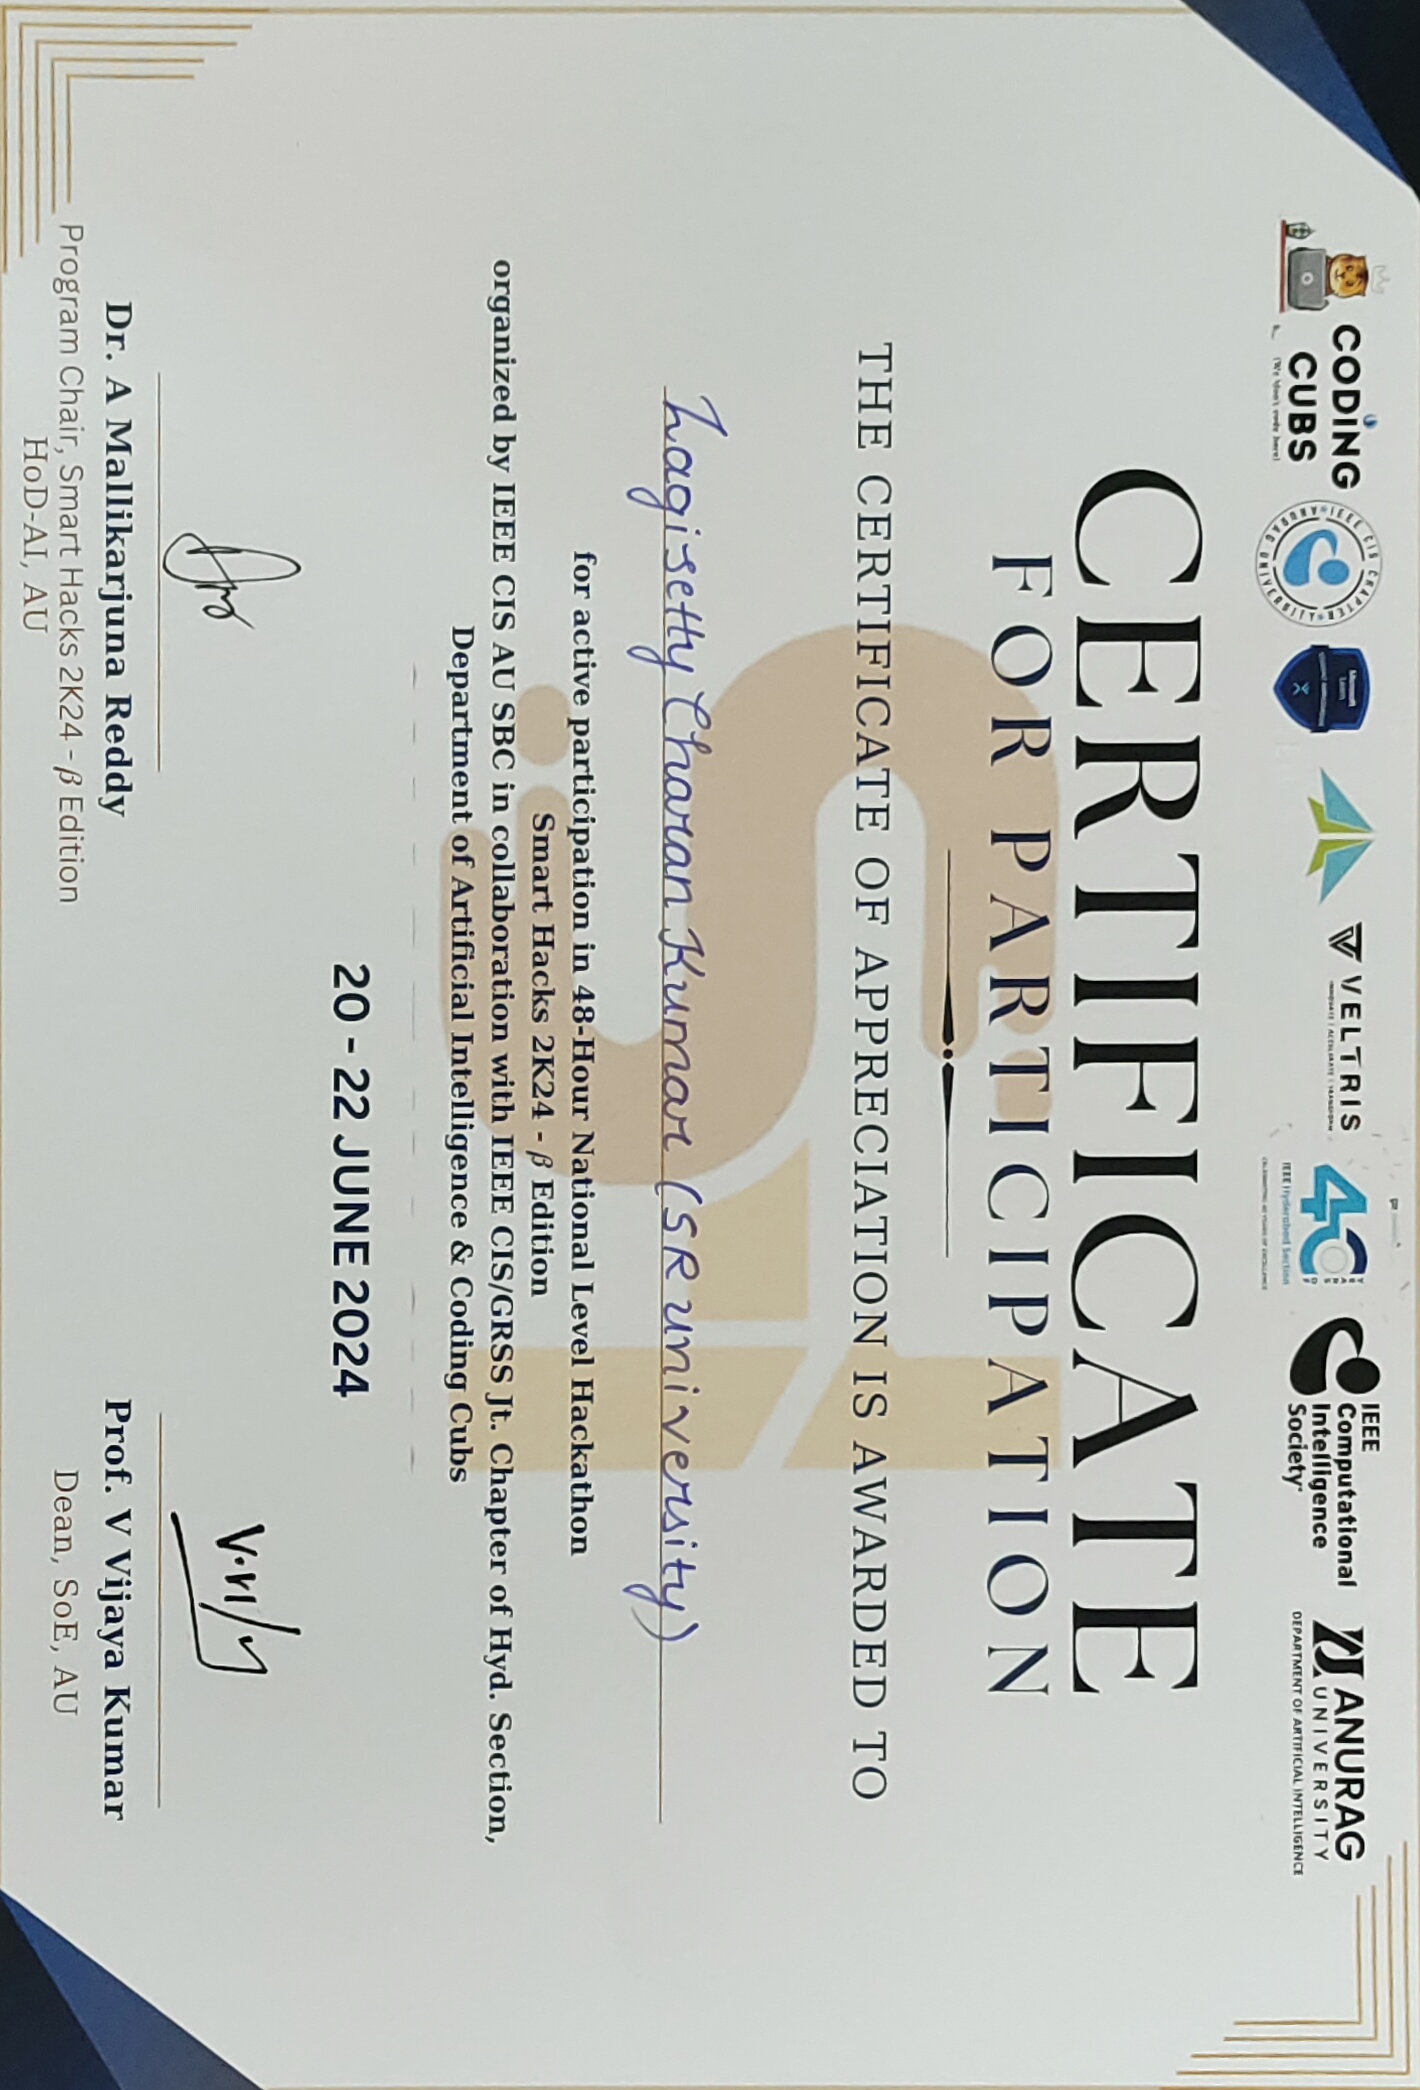 CODiNG CUBS
(We Don't code here)
IEEE CIS CHAPTER
ANURAG UNIVERSITY
Microsoft Learn
VELTRIS
INNOVATE | ACCELERATE | TRANSFORM
40 YEARS OF
IEEE Hyderabad Section
CELEBRATING 40 YEARS OF EXCELLENCE
IEEE
Computational
Intelligence
Society
ANURAG
UNIVERSITY
DEPARTMENT OF ARTIFICIAL INTELLIGENCE
CERTIFICATE
FOR PARTICIPATION
THE CERTIFICATE OF APPRECIATION IS AWARDED TO
Lagisetty Charan Kumar (SR university)
for active participation in 48-Hour National Level Hackathon
Smart Hacks 2K24 - β Edition
organized by IEEE CIS AU SBC in collaboration with IEEE CIS/GRSS Jt. Chapter of Hyd. Section,
Department of Artificial Intelligence & Coding Cubs
20 - 22 JUNE 2024
Dr. A Mallikarjuna Reddy
Program Chair, Smart Hacks 2K24 - β Edition
HoD-AI, AU
Prof. V Vijaya Kumar
Dean, SoE, AU